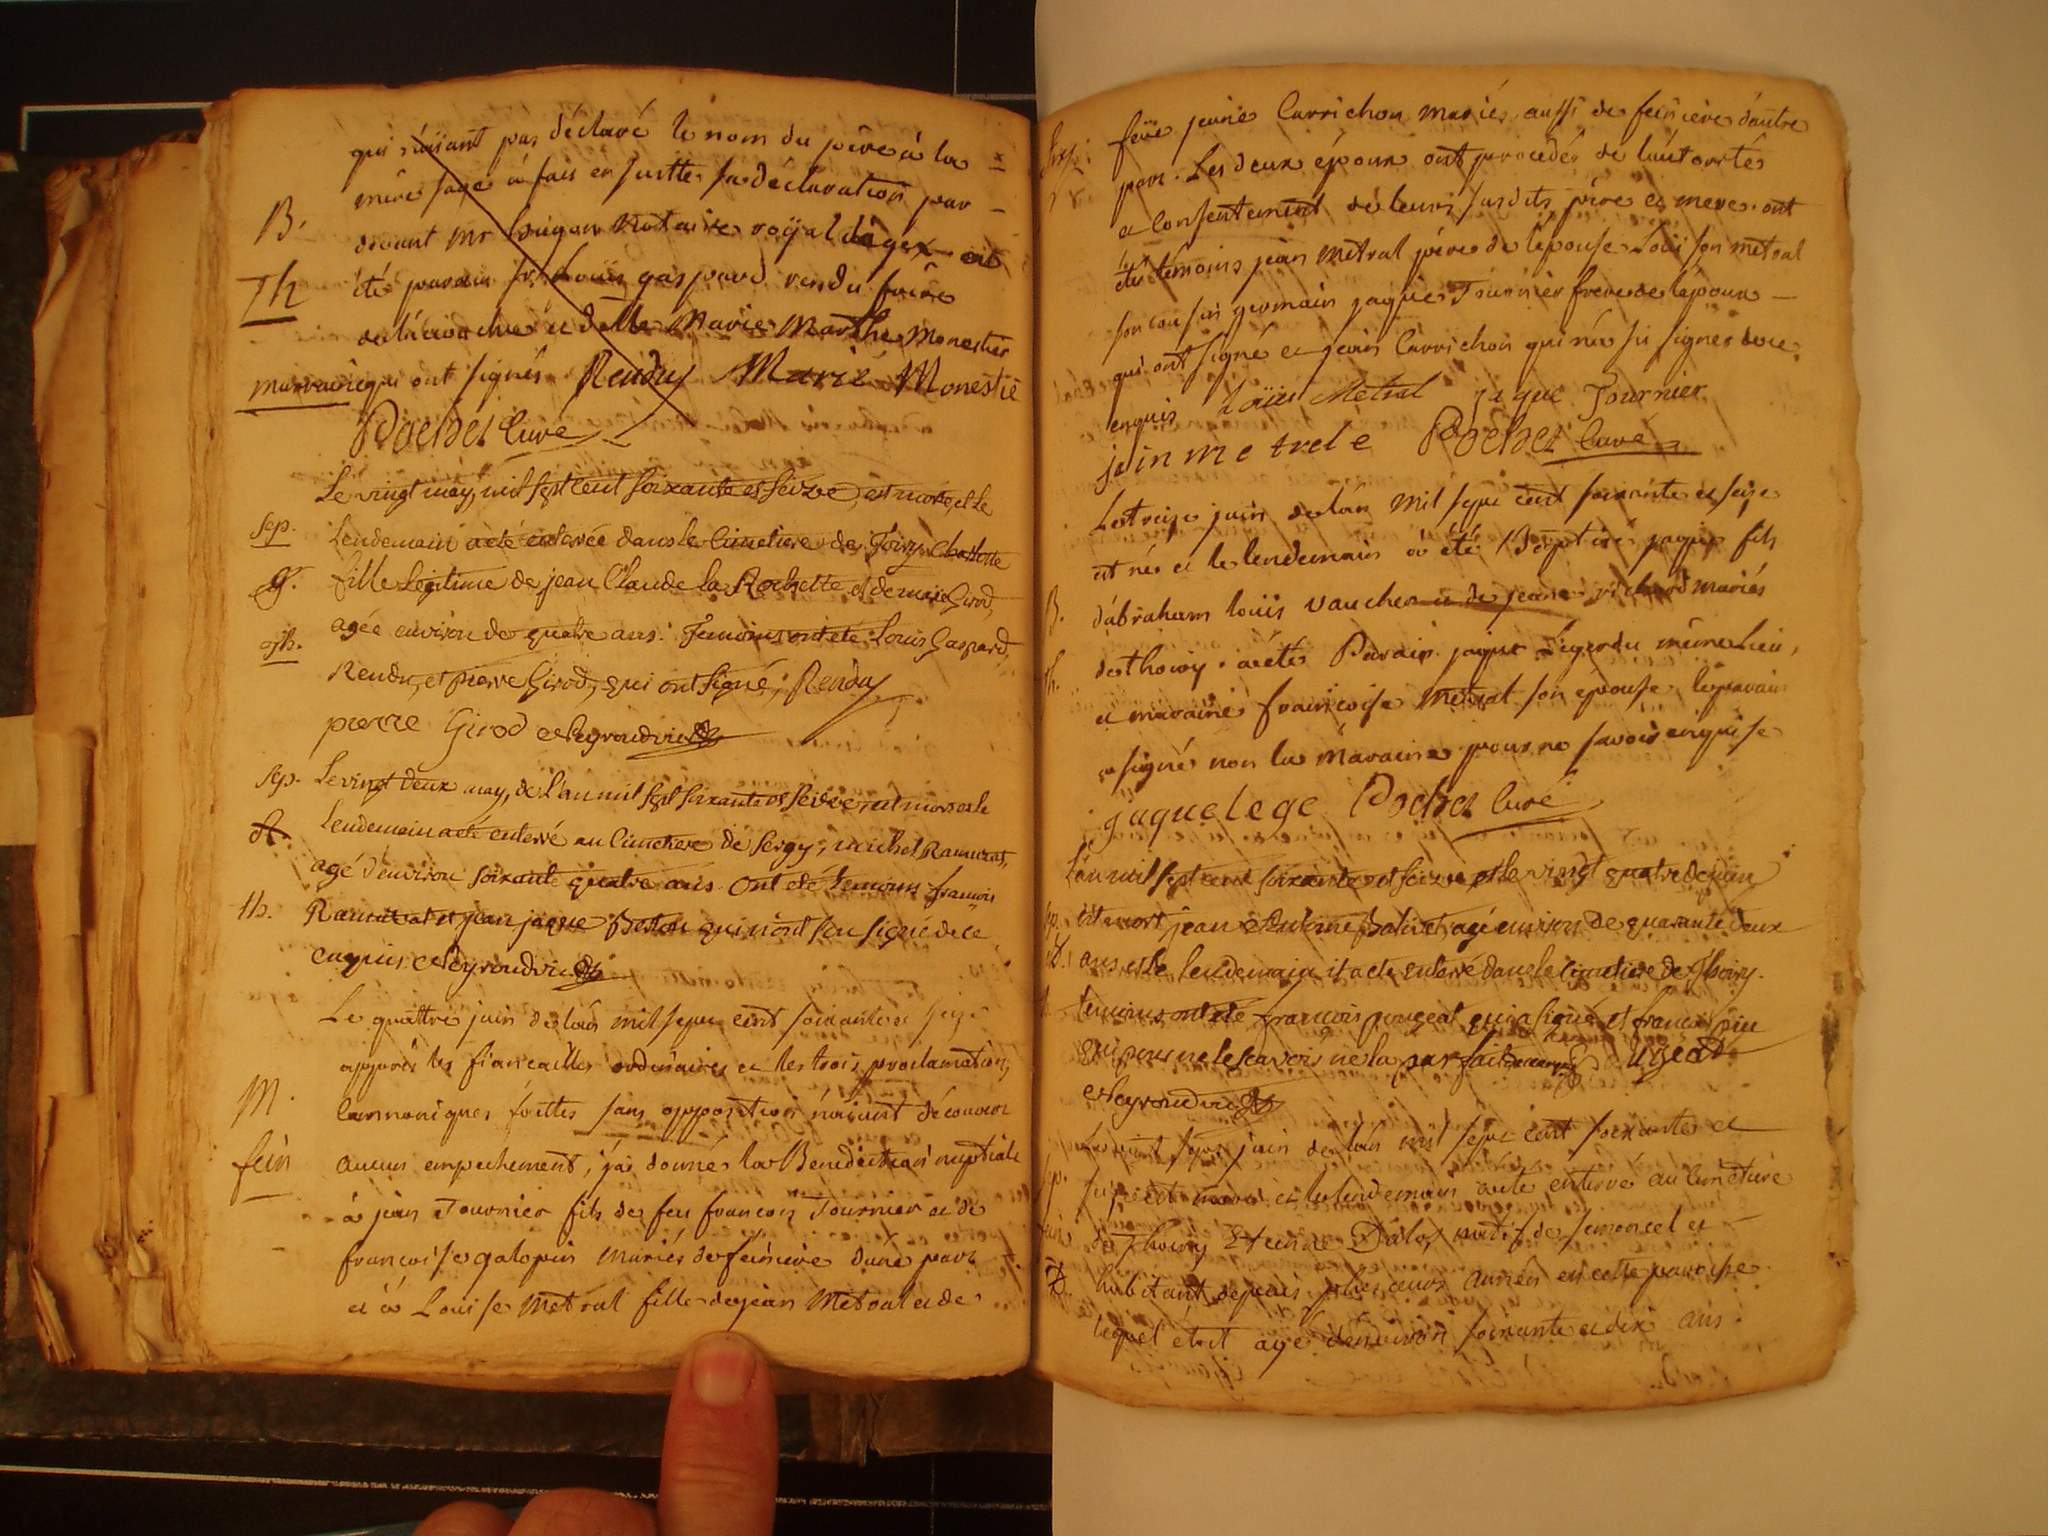 qui n'aïant pas déclaré le nom du père à la
mère sage à fait ensuitte sa déclaration par
B.
devant mr notaire royal à gex. ont
Th
été parain sr. Louis gaspard rendu frère
de l'accouchée et delle Marie Marthe Monestier
marraine qui ont signés Rendu Marie Monestié
Pochet Curé
Le vingt may, mil sept cent soixante et seizve, est morte, et le
sep.
Lendemain a eté enterrée dans le Cimetiere de Toiry Charlotte
fille Légitime de jean Claude la Rochette et de marie Girod,
th.
agée environ de quatre ans. Temoins ont eté Louis Gaspard,
Rendu, et pierre Girod, qui ont signé; Rendu
pierre Girod
sep.
Le vingt deux may, de L'an mil sept soixante et seizve est mort et le
Lendemain a eté enterré au Cimetiere de Sergy, michel Ramuzat,
agé d'environ soixante quatre ans. Ont eté temoins françois
th.
Ramuzat et jean jaque qui n'ont seu signé de ce
enquis
Le quattre juin de l'an mil sept cent soixante et seize
apprès les fiancailles ordinaires et les trois proclamations
M.
cannoniques faittes sans opposition n'aiant découvert
fein
aucun empechement, j'ai donné la Benediction nuptiale
à jean Tournier fils de feu francois Tournier et de
francoise galopin mariés de feiniere d'une part
et à Louise Metral fille de jean Metral et de
feüe jeane Carrichon mariés aussi de feiniere d'autre
part. Les deux époux ont procedés de l'autorité
et consentement de leurs susdits père et mere. ont
été temoins jean Metral père de l'epouse Loüis son metral
son cousin germain jaque Tournier frere de l'epoux
qui ont signé et jean Carrichon qui n'a su signer de ce
enquis Loüis Metral jaque Tournier
jain metrele Pochet Curé
Le treize juin de l'an mil sept cent soixante et seize
est né et le lendemain a été Baptisé jaque fils
B.
d'abraham loüis vaucher et de jeane richard mariés
de thoiry. a été Parain jaque Leger du même Lieu,
th.
et maraine francoise Metral son epouse le parain
a signé non la maraine pour ne savoir enquise
jaque lege Pochet Curé
L'an mil sept cent soixante et seizve et le vingt quatre de juin
est mort jean Antoine agé environ de quarante deux
ans et le lendemain il a eté enterré dans le cimetiere de Thoiry.
temoins ont eté françois pougeat qui a signé et françois
qui pour ne le scavoir ne l'a pas fait
Le vingt sept juin de l'an mil sept cent soixante et
seize est mort et le lendemain a eté enterré au cimetiere
de Thoiry Etienne Dalo natif de semoncel et
habitant depuis plusieurs années en cette paroisse
lequel étoit agé d'environ soixante et dix ans